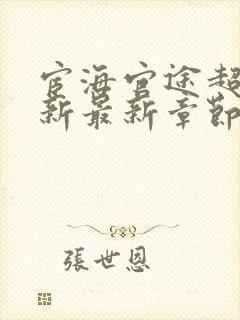 宦海官途超
新最新章節
張世恩